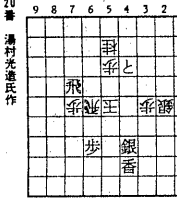 20番 湯村光造氏作
9 8 7 6 5 4 3 2
桂
歩 と
飛
歩 飛 玉 歩 銀
歩 銀
香